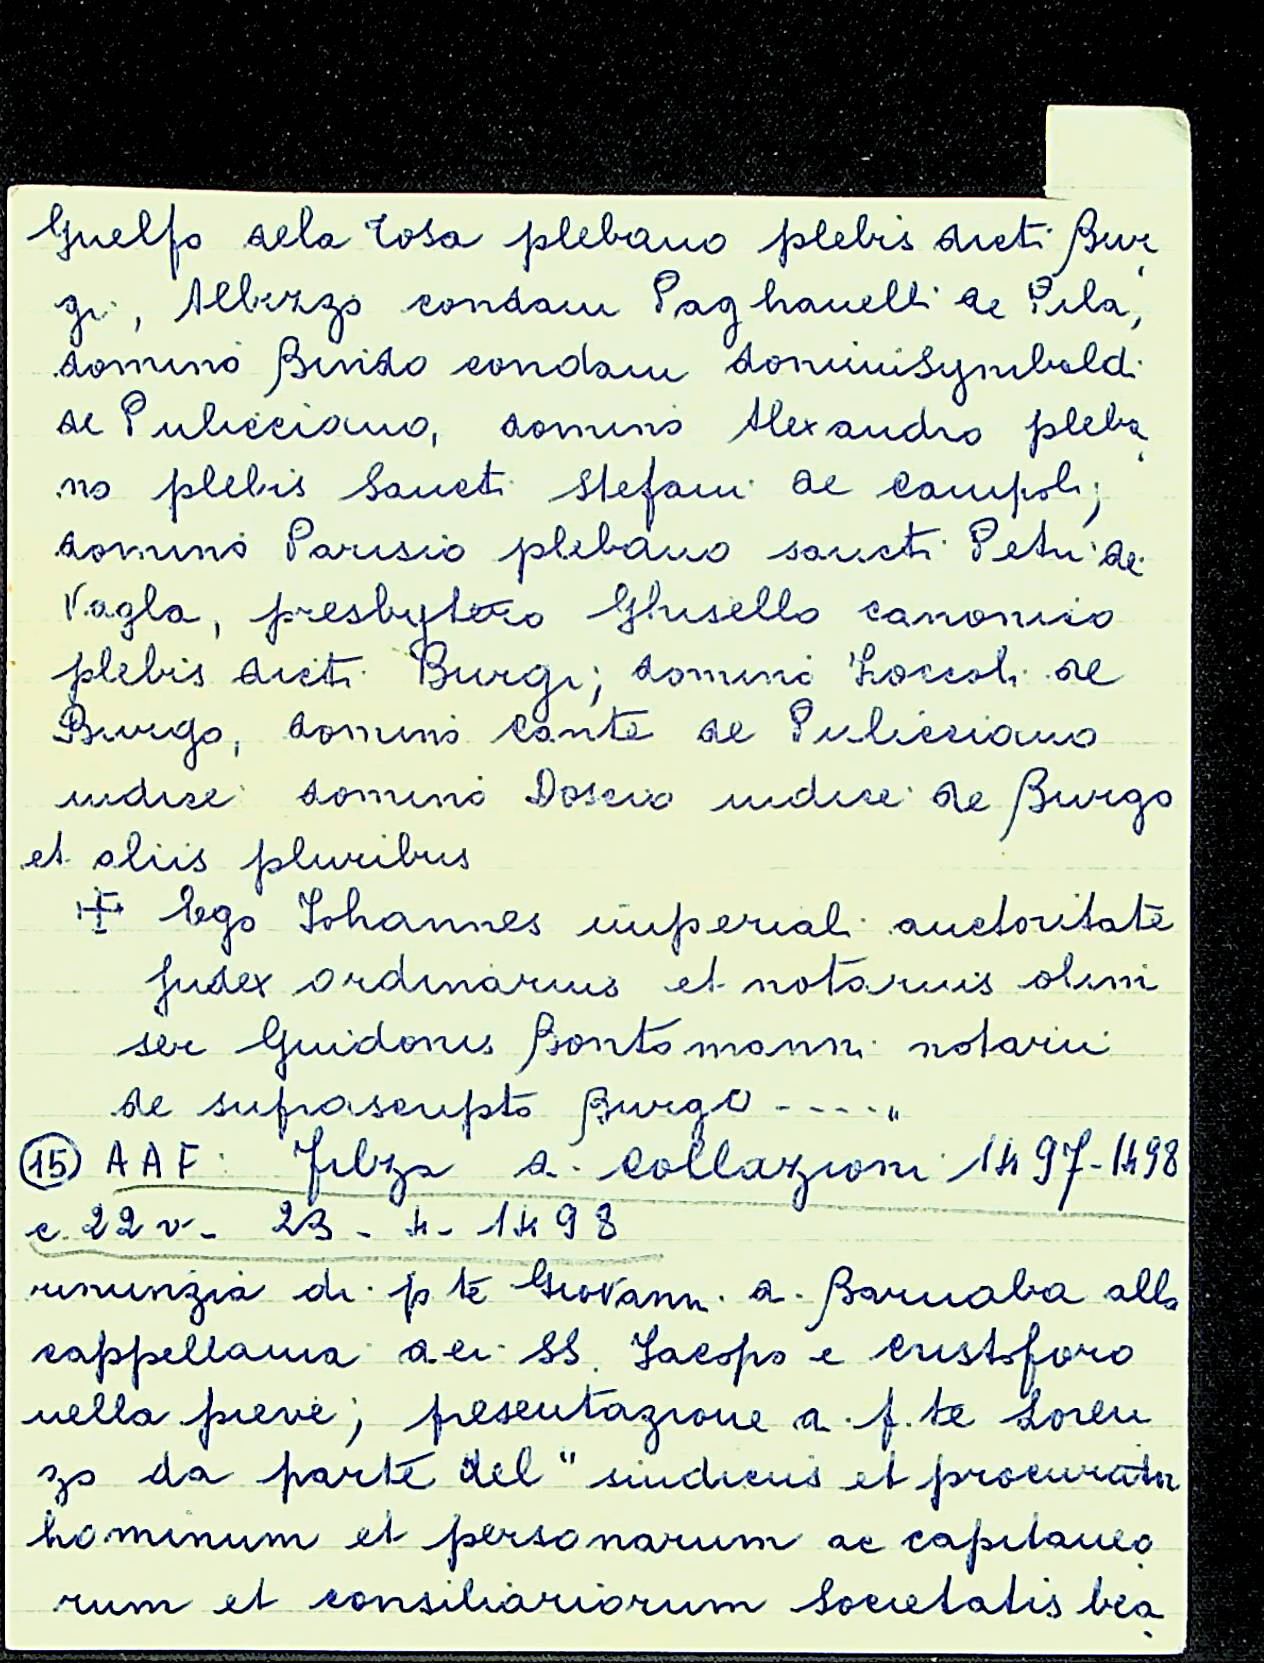 Guelfo dela Tosa plebano plebis dicti Bur
gi, Albizzo condam Paghanelli de Pila,
domino Bindo condam domini Symbaldi
de Pulicciano, domino Alexandro pleba
no plebis Sancti Stefani de Campoli;
domino Parisio plebano sancti Petri de
Vagla, presbytero Ghisello canonico
plebis dicti Burgi; domino Loccoli de
Burgo, domino Cante de Pulicciano
iudice domino Doscio iudice de Burgo
et aliis pluribus
Ego Johannes imperiali auctoritate
Judex ordinarius et notarius olim
ser Guidonis Bontomanni notarii
de suprascripto Burgo ----"
(15) AAF. Filza d. collazioni 1497-1498
c. 22 v - 23 - 4 - 1498
rinunzia di p te Giovanni d. Barnaba alla
cappellania dei SS. Jacopo e Cristoforo
nella pieve; presentazione d. p. te Loren
zo da parte del "sindicus et procurator
hominum et personarum ac capitaneo
rum et consiliariorum Societatis bea